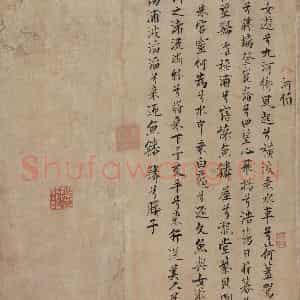 河伯
女遊兮九河衝風起兮橫波乘水車兮荷蓋駕
兮驂螭登崑崙兮四望心飛揚兮浩蕩日將暮兮
極浦兮寤懷魚鱗屋兮龍堂紫貝
朱宮靈何為兮水中乘白黿兮逐文魚與女遊
河之渚流澌紛兮將來下子交手兮東行送美人
南浦波滔滔兮來迎魚鱗鱗兮媵予